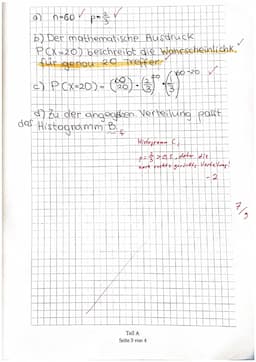 a) n=60 ✓ p=2/3 ✓
b) Der mathematische Ausdruck
P(X=20) beschreibt die Wahrscheinlichk.
für genau 20 Treffer. ✓
c) P(X=20) = (60 20) · (2/3)^20 · (1/3)^60-20 ✓
d) Zu der angegeben Verteilung passt
das Histogramm B.
Histogramm C,
p = 2/3 > 0,5, daher die
nach rechts Verteilung!
-2
7/9
Teil A
Seite 3 von 4